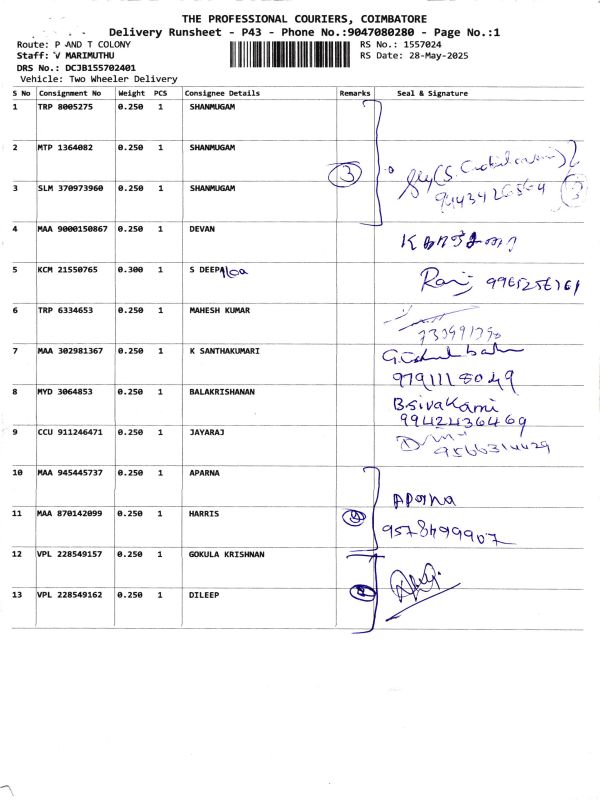 THE PROFESSIONAL COURIERS, COIMBATORE
Delivery Runsheet - P43 - Phone No.:9047080280 - Page No.:1
Route: P AND T COLONY
RS No.: 1557024
Staff: V MARIMUTHU
RS Date: 28-May-2025
DRS No.: DCJB155702401
Vehicle: Two Wheeler Delivery
S No Consignment No Weight PCS Consignee Details Remarks Seal & Signature
1 TRP 8005275 0.250 1 SHANMUGAM
2 MTP 1364082 0.250 1 SHANMUGAM
3
3 SLM 370973960 0.250 1 SHANMUGAM
4 MAA 9000150867 0.250 1 DEVAN
5 KCM 21550765 0.300 1 S DEEPA
6 TRP 6334653 0.250 1 MAHESH KUMAR
7 MAA 302981367 0.250 1 K SANTHAKUMARI
9791118049
8 MYD 3064853 0.250 1 BALAKRISHANAN
BsivaKami
9942436469
9 CCU 911246471 0.250 1 JAYARAJ
9566314429
10 MAA 945445737 0.250 1 APARNA
Aparna
11 MAA 870142099 0.250 1 HARRIS
9578499907
12 VPL 228549157 0.250 1 GOKULA KRISHNAN
13 VPL 228549162 0.250 1 DILEEP